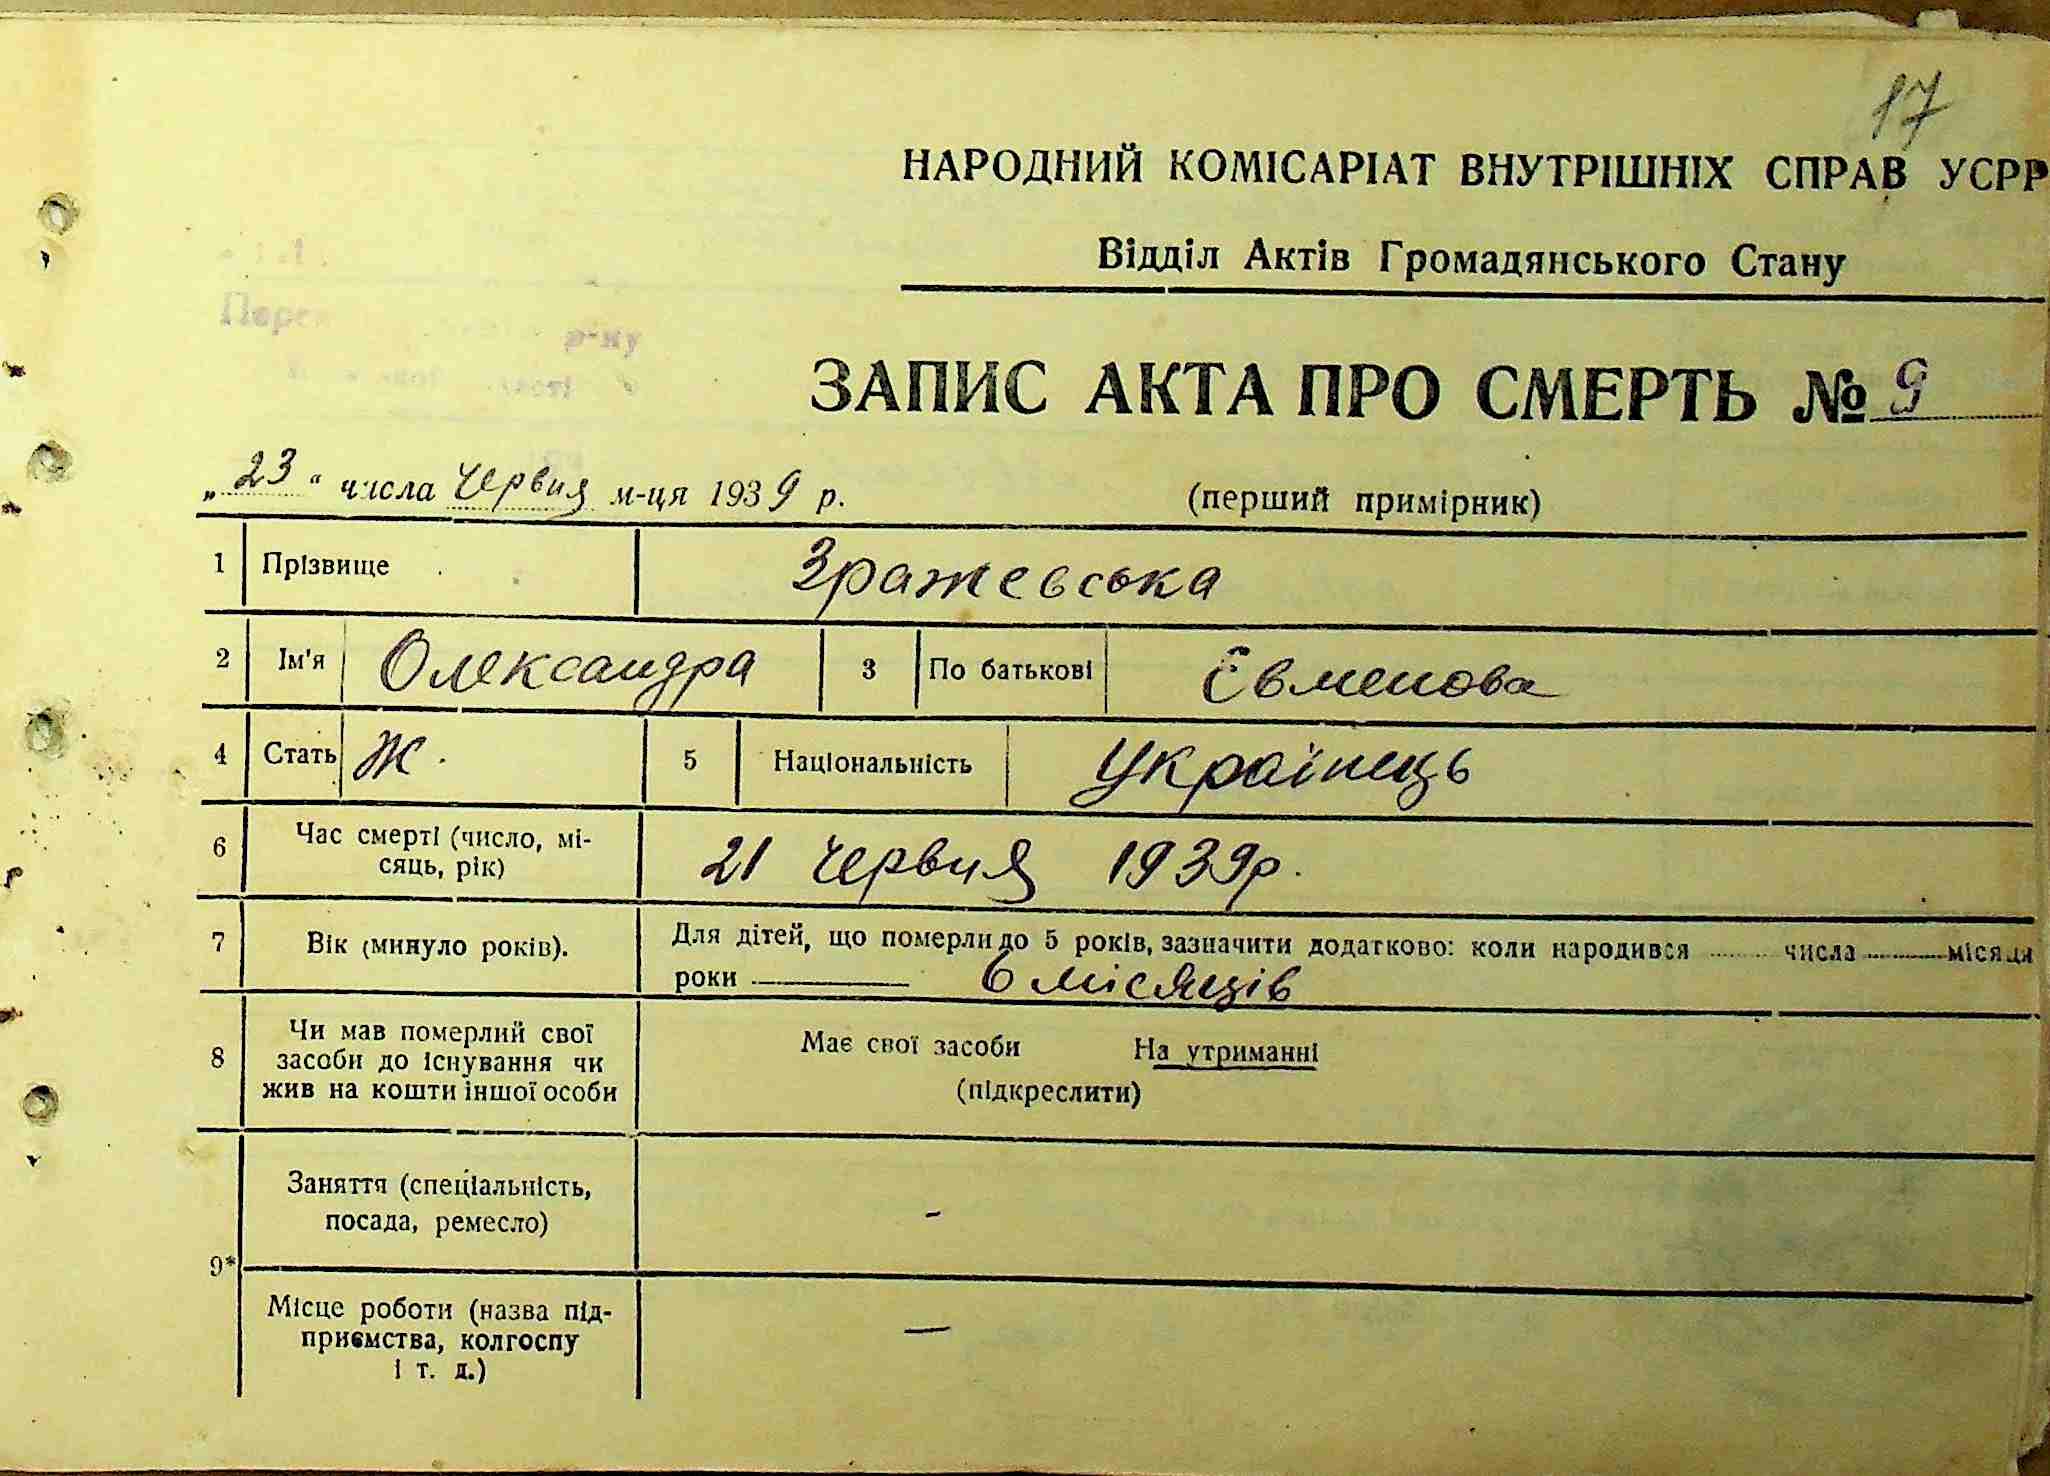 17
НАРОДНИЙ КОМІСАРІАТ ВНУТРІШНІХ СПРАВ УСРР
Відділ Актів Громадянського Стану
р-ну
ЗАПИС АКТА ПРО СМЕРТЬ № 9
„23“ числа Червня м-ця 1939 р. (перший примірник)
1 Прізвище Зражевська
2 Ім'я Олександра 3 По батькові Євменова
4 Стать Ж. 5 Національність Українець
6 Час смерті (число, мі-
сяць, рік) 21 Червня 1939р.
7 Вік (минуло років). Для дітей, що померли до 5 років, зазначити додатково: коли народився числа місяця
роки 6 місяців
8 Чи мав померлий свої
засоби до існування чи
жив на кошти іншої особи
Має свої засоби На утриманні
(підкреслити)
9* Заняття (спеціальність,
посада, ремесло) -
Місце роботи (назва під-
приємства, колгоспу
і т. д.) —